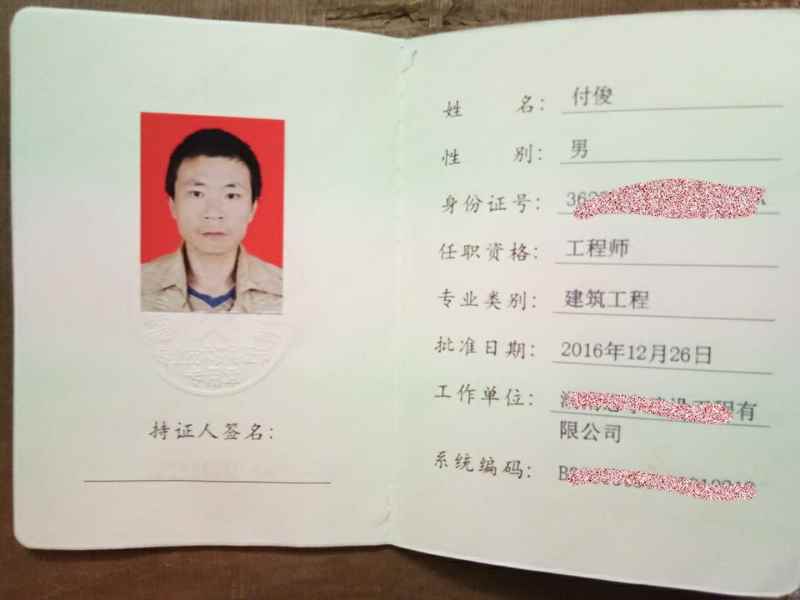 持证人签名：
姓 名： 付俊
性 别： 男
身份证号：
任职资格： 工程师
专业类别： 建筑工程
批准日期： 2016年12月26日
工作单位： 有
限公司
系统编码：